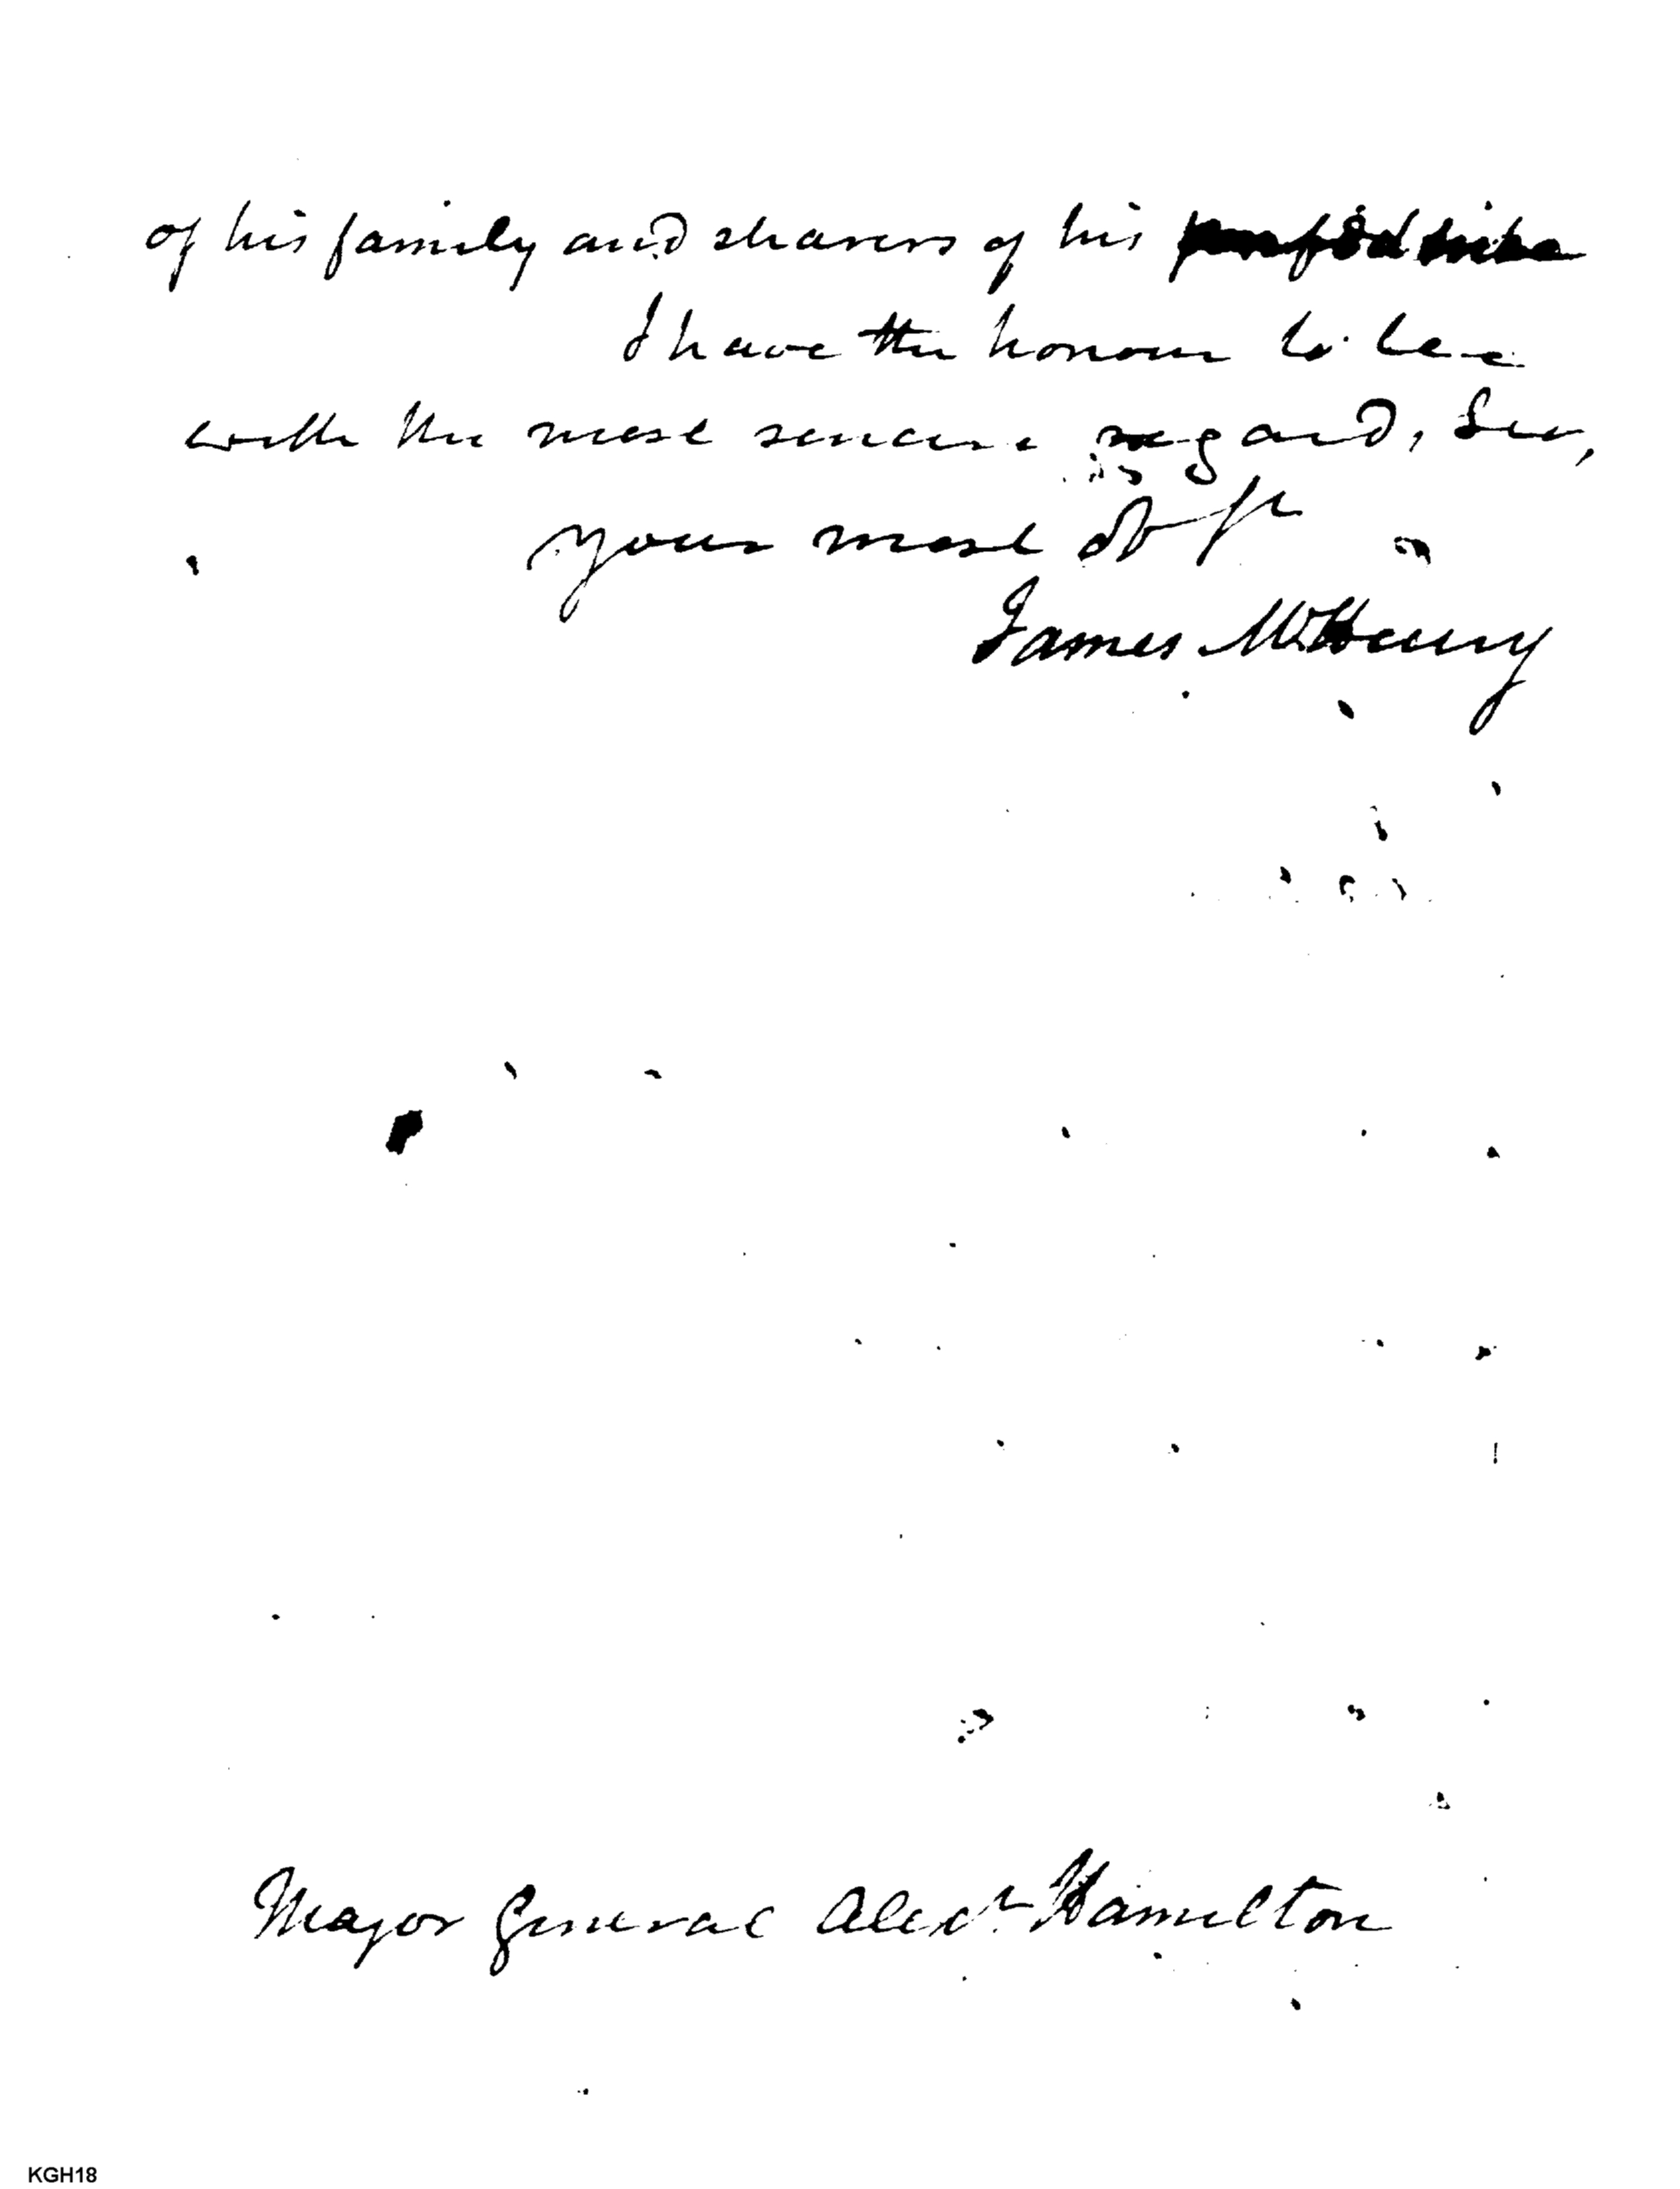 of his family and sharers of his
I have the honour to be
with the most sincere regard, Sir,
your most obt
James McHenry
Major General Alexr. Hamilton
KGH18